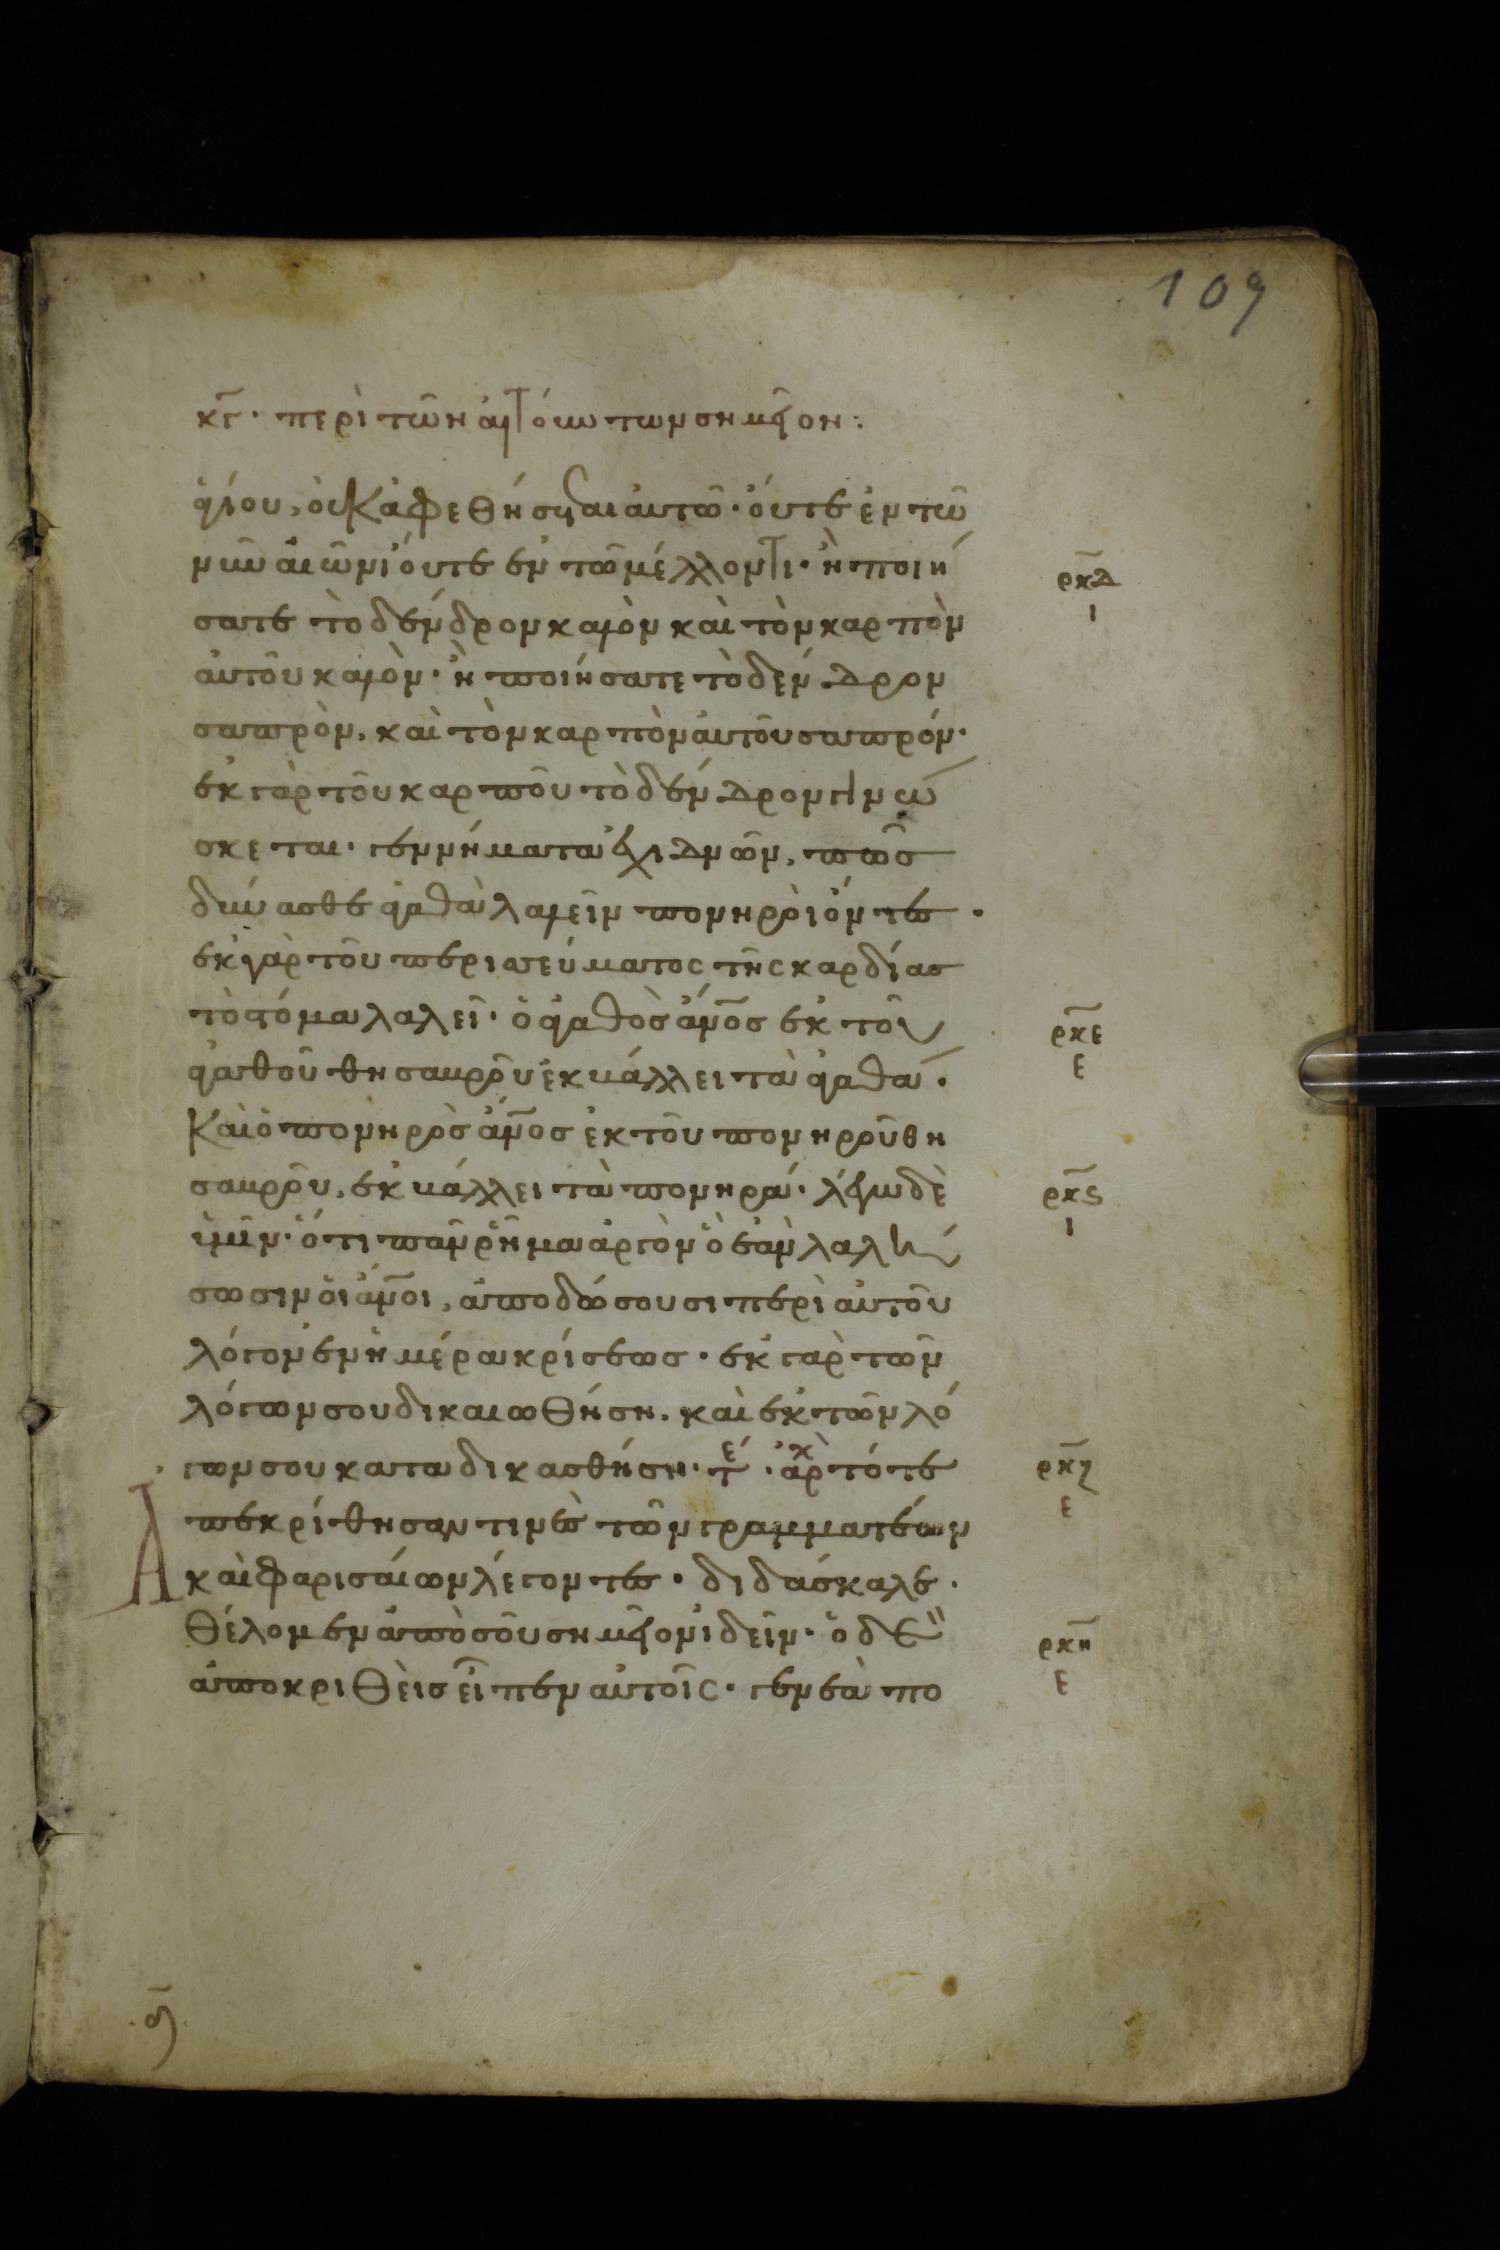 109
κγ̅· περὶ τῶν αἰτούντων σημεῖον:
ἁγίου, οὐκ ἀφεθήσεται αὐτῶ· οὔτε ἐν τῶ
νῦν αἰῶνι οὔτε ἐν τῶ μέλλοντι· ἢ ποιή
σατε τὸ δένδρον καλὸν καὶ τὸν καρπὸν
αὐτοῦ καλὸν· ἢ ποιήσατε τὸ δένδρον
σαπρὸν, καὶ τὸν καρπὸν αὐτοῦ σαπρόν·
ἐκ γὰρ τοῦ καρποῦ τὸ δένδρον γινώ
σκεται· γεννήματα ἐχιδνῶν, πῶσ
δύνασθε ἀγαθὰ λαλεῖν πονηροὶ ὄντες·
ἐκ γὰρ τοῦ περισσεύματος τῆς καρδίασ
τὸ στόμα λαλεῖ· ὁ ἀγαθὸσ ἄνο̅σ ἐκ τοῦ
ἀγαθοῦ θησαυροῦ ἐκβάλλει τὰ ἀγαθά·
Καὶ ὁ πονηρὸσ ἄνο̅σ ἐκ τοῦ πονηροῦ θη
σαυροῦ, ἐκβάλλει τὰ πονηρά· λέγω δὲ
ὑμῖν· ὅτι πᾶν ῥῆμα ἀργὸν ὃ ἐὰν λαλή
σωσιν οἱ ἄνο̅ι, ἀποδώσουσι περὶ αὐτοῦ
λόγον ἐν ἡμέρα κρίσεωσ· ἐκ γὰρ τῶν
λόγων σου δικαιωθήση, καὶ ἐκ τῶν λό
γων σου καταδικασθήση· τέ· ἀρχ τότε
Ἀπεκρίθησαν τινὲσ τῶν γραμματέων
καὶ φαρισαίων λέγοντεσ· διδάσκαλε·
Θέλομεν ἀπὸ σοῦ σημεῖον ἰδεῖν· ὁ δὲ
ἀποκριθεὶσ εἶπεν αὐτοῖς· γενεὰ πο
ρκδ̅
ι
ρκε̅
ε
ρκϛ̅
ι
ρκζ̅
ε
ρκη̅
ε